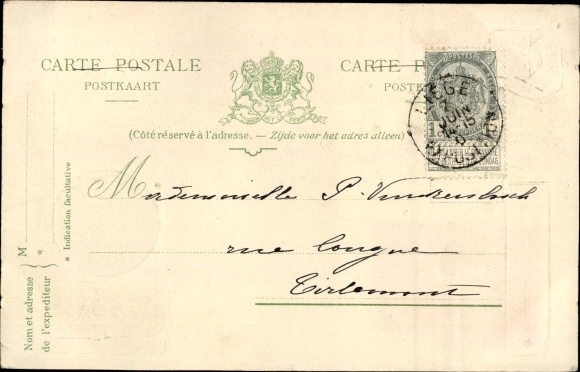 CARTE POSTALE
POSTKAART
CARTE P
POSTK
(Côté réservé à l'adresse. — Zijde voor het adres alleen)
POSTES
LIÉGE
7
JUIN
1
Mademoiselle P. Vinckenbosch
rue longue
Tirlemont
* Indication facultative
M *
Nom et adresse
de l'expediteur